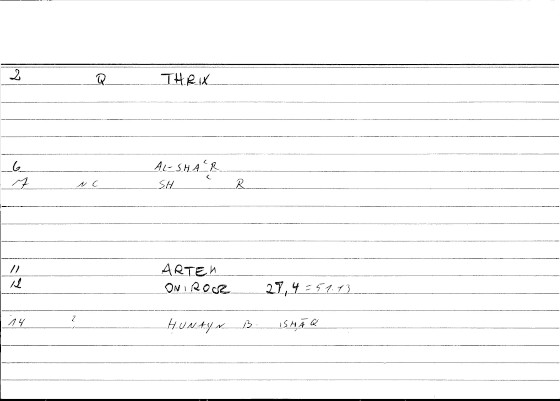 2 Q THRIX
6 AL-SHAʿR
7 NC SH ʿ R
11 ARTEM
12 ONIROCR 27,4 = 51.13
14 ? HUNAYN B ISḤĀQ